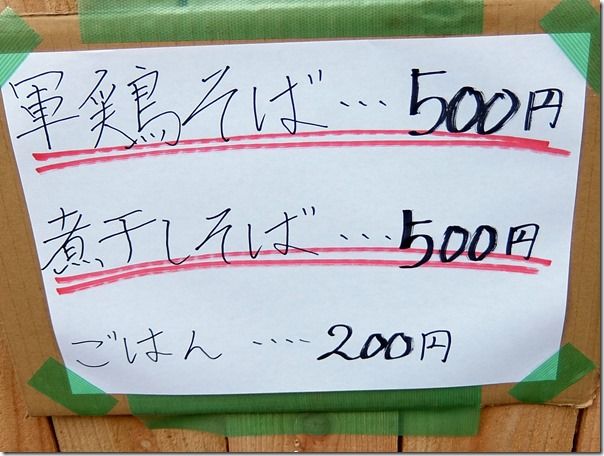 軍鶏そば…500円
煮干しそば…500円
ごはん‥‥200円